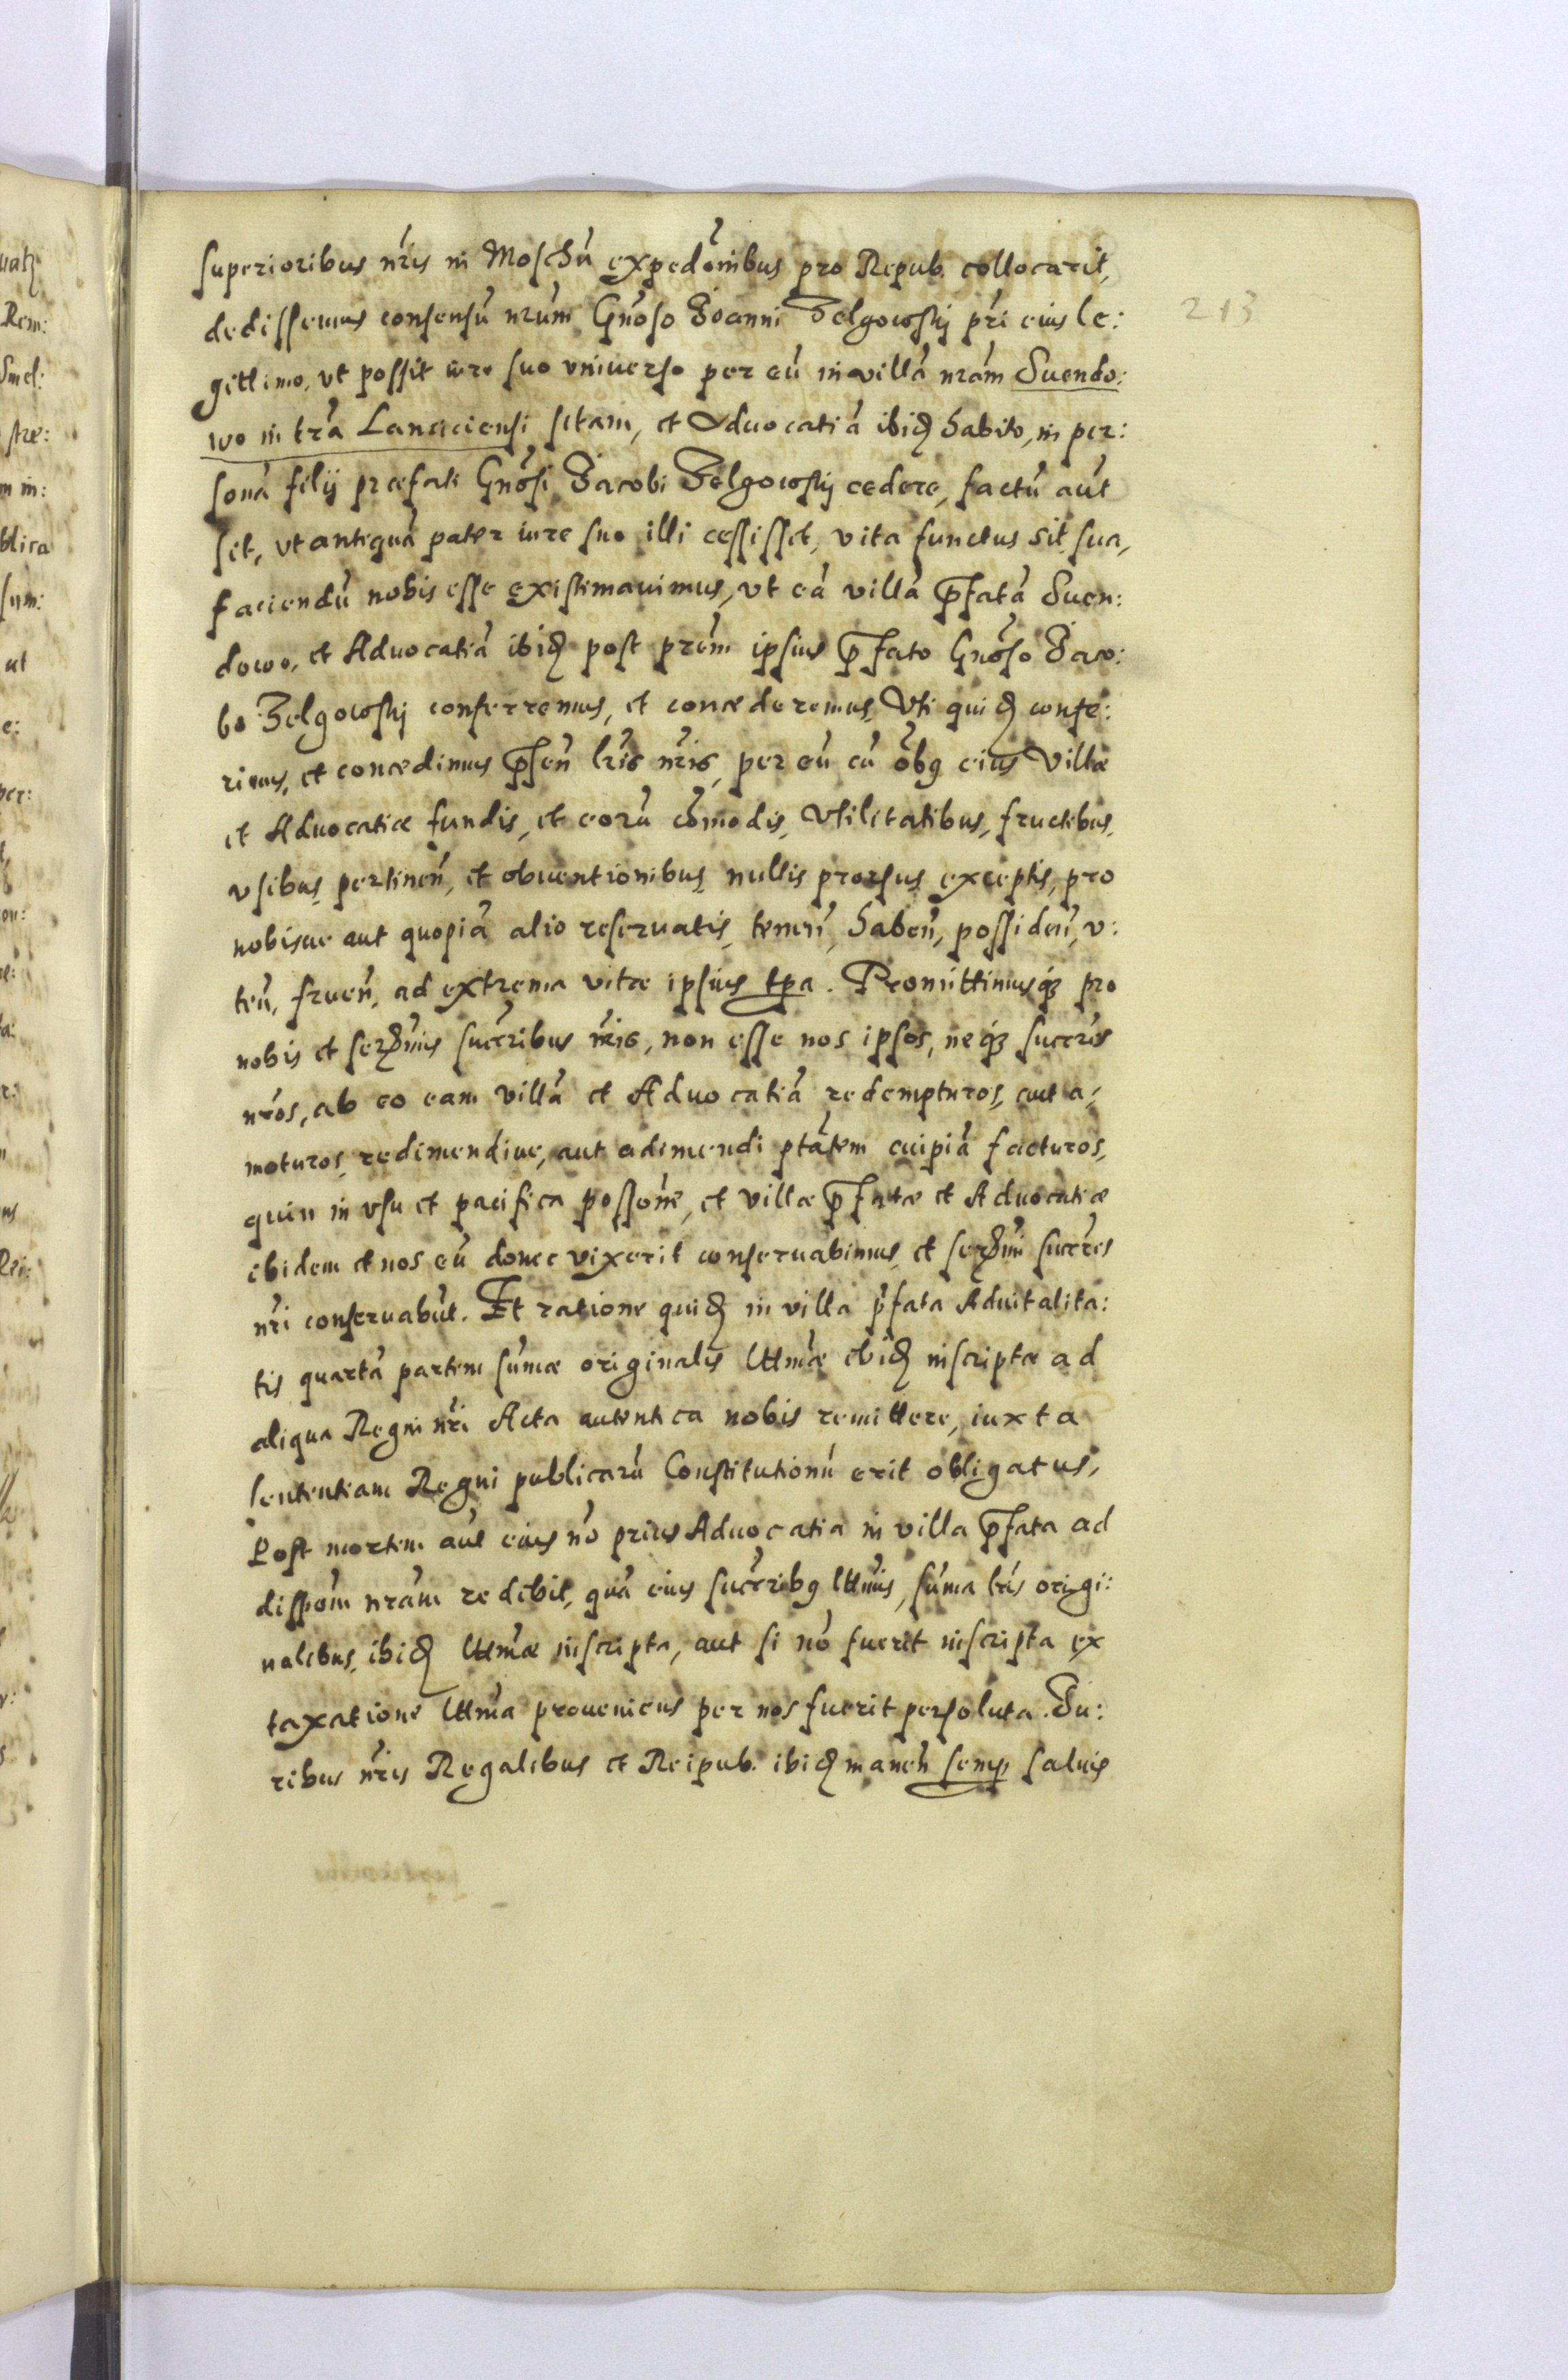 superioribus nr̃is in Moschũ expedõnibus pro Repub. collocarit,
213
dedissemus consensũ nr̃um Gñoso Joanni Zelgowskj pr̃i eius le:
gittimo, ut possit iure suo universo per eũ in villã nr̃am Suendo:
wo in tr̃a Lanciciensi sitam, et Advocatiã ibid habito, in per:
sonã filij præfati Gñosi Jacobi Zelgowskj cedere, factũ aũt
sit, ut antequã pater iure suo illi cessisset, vita functus sit sua,
faciendũ nobis esse existimavimus, ut eã villã p̃fatã Suen:
dowo, et Advocatiã ibid post pr̃em ipsius p̃fato Gñoso Jaco:
bo Zelgowskj conferremus, et concederemus, Uti quid confe:
rimus, et concedimus p̃sen̄ lr̃is nr̃is, per eũ cũ õbus eius Villæ
et Advocatiæ fundis, et eorũ cõmodis, Utilitatibus, fructibus,
usibus, pertinen̄, et obventionibus, nullis prorsus exceptis, pro
nobisve aut quopiã alio reservatis, tenen̄, haben̄, possiden̄, u:
ten̄, fruen̄, ad extrema vitæ ipsius tpa. Promittimusq3 pro
nobis et ser̃mis succr̃ibus nr̃is, non esse nos ipsos, neq3 succr̃es
nr̃os, ab eo eam villã et Advocatiã redempturos, aut a:
moturos, redimendive, aut adimendi ptãtem cuipiã facturos,
quin in usu et pacifica possõne, et villæ p̃fatæ et Advocatiæ
ibidem et nos eũ donec vixerit conservabimus, et ser̃mi succr̃es
nr̃i conservabũt. Et ratione quid in villa p̃fata Advitalita:
tis quartã partem sum̃æ originalis Ultimæ ibid inscriptæ ad
aliqua Regni nr̃i Acta autentica nobis remittere, iuxta
sententiam Regni publicarũ Constitutionũ erit obligatus,
Post mortem aũt eius nõ prius Advocatia in villa p̃fata ad
disposm̃ nr̃am redibit, quã eius succr̃ibus Ult̃mis, sum̃a lr̃is origi:
nalibus, ibid Ult̃mæ inscripta, aut si nõ fuerit inscripta ex
taxatione Ult̃ma proveniens per nos fuerit persoluta. Iu:
ribus nr̃is Regalibus et Reipub. ibid manen̄ semp salvis